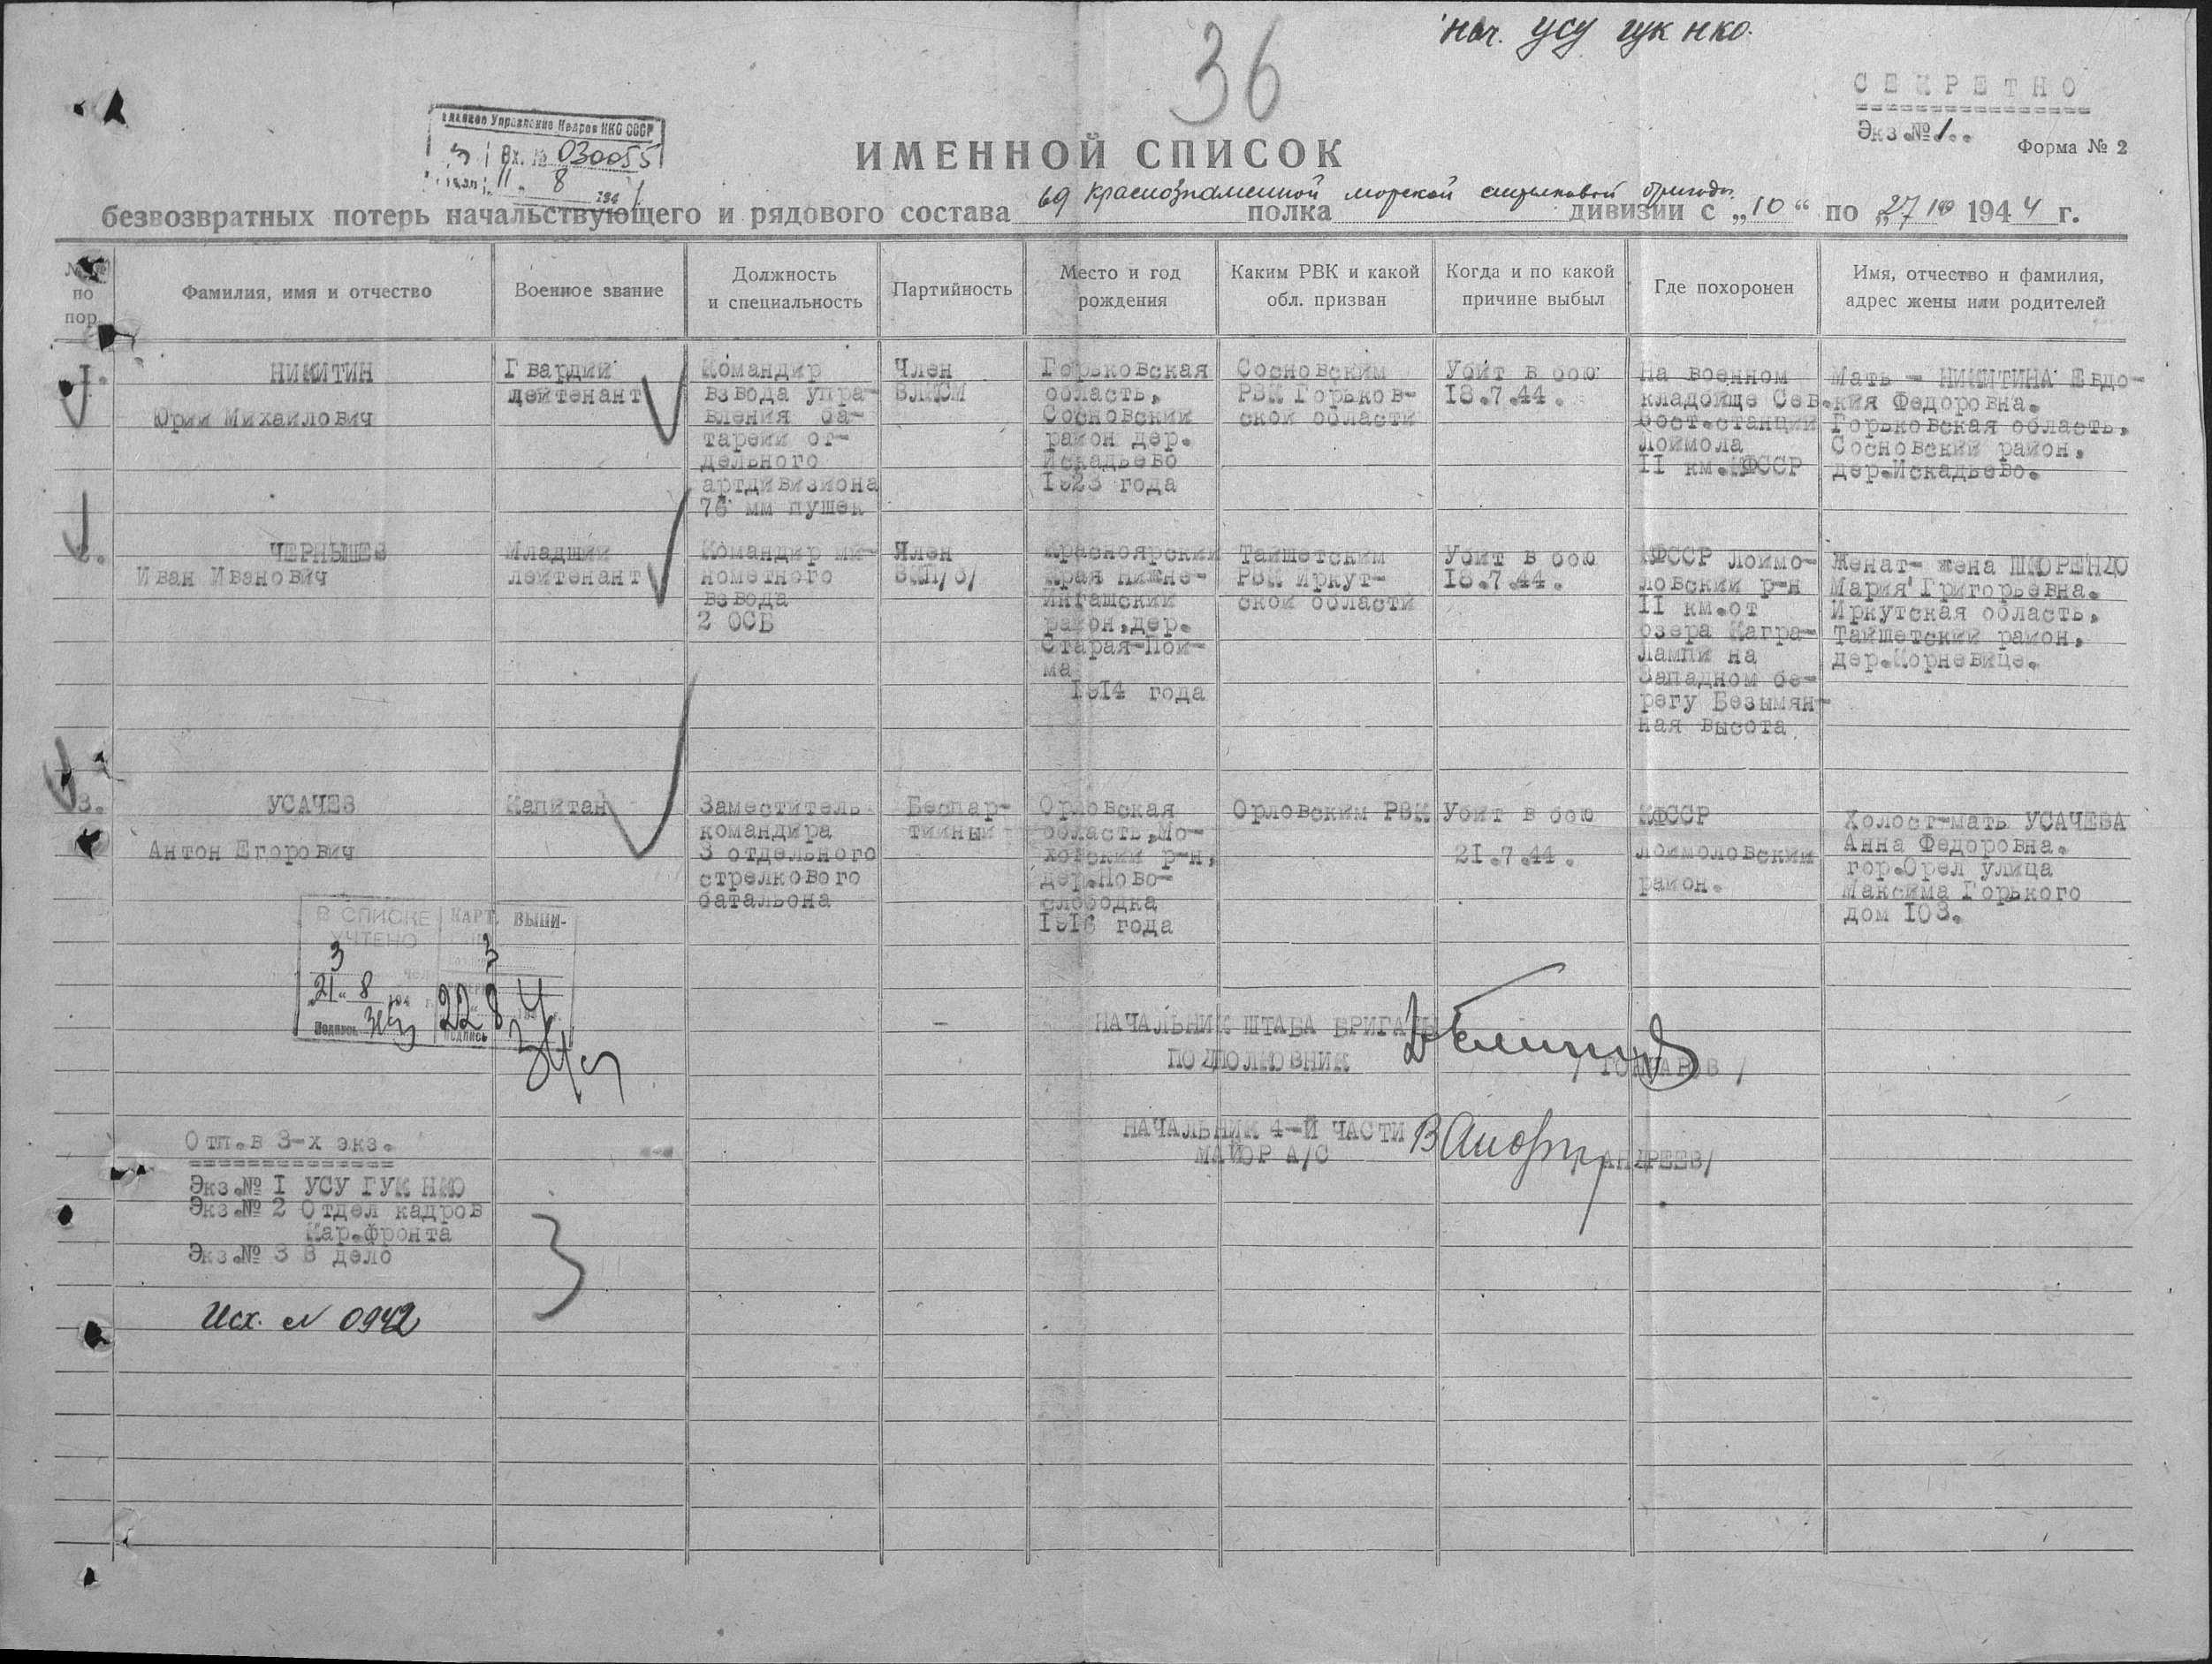 Нач. УСУ ГУК НКО.
36
СЕКРЕТНО
Экз.№ 1..
Форма № 2
Главное Управление Кадров НКО СССР
Вх. № 030055
11 8 194
ИМЕННОЙ СПИСОК
безвозвратных потерь начальствующего и рядового состава 69 Краснознаменной морской стрелковой бригады полка дивизии с „10“ по „27 1944 г.
по пор.
Фамилия, имя и отчество
Военное звание
Должность и специальность
Партийность
Место и год рождения
Каким РВК и какой обл. призван
Когда и по какой причине выбыл
Где похоронен
Имя, отчество и фамилия, адрес жены или родителей
I.
НИКИТИН
Юрий Михайлович
Гвардии
лейтенант
Командир
взвода упра-
вления ба-
тареии от-
дельного
артдивизиона
76 мм пушек
Член
ВЛКСМ
Горьковская
область,
Сосновский
район дер.
Искадьево
1923 года
Сосновским
РВК Горьков-
ской области
Убит в бою
18.7.44.
На военном
кладбище Сев.
Вост.станции
Лоймола
II км.КФССР
Мать - НИКИТИНА Евдо-
кия Федоровна.
Горьковская область,
Сосновский район,
дер.Искадьево.
2.
ЧЕРНЫШЕВ
Иван Иванович
Младший
лейтенант
Командир ми-
нометного
взвода
2 ОСБ
Член
ВКП/б/
Красноярский
край Нижне-
Ингашский
район,дер.
Старая-Пой-
ма
1914 года
Тайшетским
РВК Иркут-
ской области
Убит в бою
18.7.44.
КФССР Лоймо-
ловский р-н
II км.от
озера Кагра-
Лампи на
Западном бе-
регу Безымян-
ная высота
Женат- жена ШКОРЕНДО
Мария Григорьевна.
Иркутская область,
Тайшетский район,
дер.Корневище.
3.
УСАЧЕВ
Антон Егорович
Капитан
Заместитель
командира
3 отдельного
стрелкового
батальона
Беспар-
тийный
Орловская
область,Мо-
ховский р-н,
дер.Ново-
слободка
1916 года
Орловским РВК
Убит в бою
21.7.44.
КФССР
Лоймоловский
район.
Холост-мать УСАЧЕВА
Анна Федоровна.
гор.Орел улица
Максима Горького
дом 103.
В СПИСКЕ
УЧТЕНО
3
21. 8
Подпись
КАРТ. ВЫПИ-
3
22 8 4
Подпись
НАЧАЛЬНИК ШТАБА БРИГАДЫ
ПОДПОЛКОВНИК / ГОНЧАРОВ /
НАЧАЛЬНИК 4-Й ЧАСТИ
МАЙОР А/С /АНДРЕЕВ/
Отп.в 3-х экз.
Экз.№ I УСУ ГУК НКО
Экз.№ 2 Отдел кадров
Кар.фронта
Экз.№ 3 В дело
3
Исх. N 0942